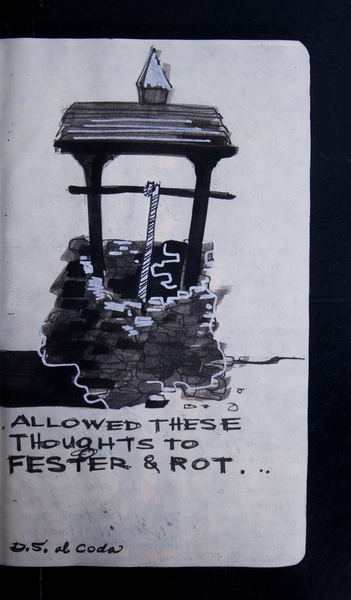 . ALLOWED THESE
THOUGHTS TO
FESTER & ROT...
D.S. al Coda